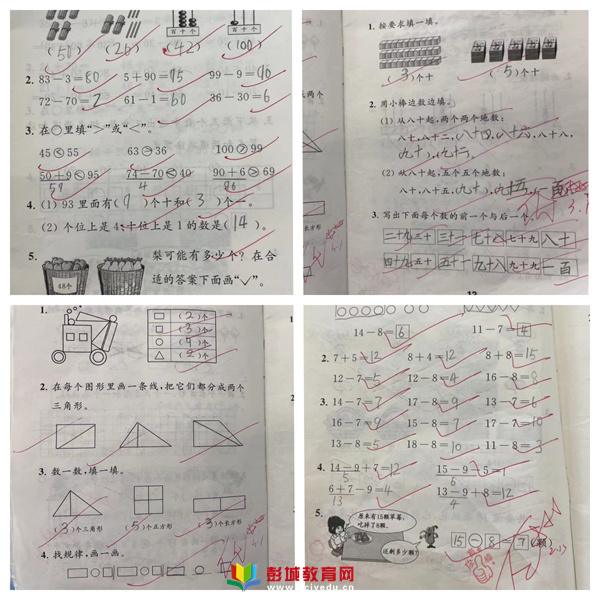 (50) (26) (42) (100)
百十个 百十个
2. 83－3=80 5＋90=95 99－9=90
72－70=2 61－1=60 36－30=6
3. 在○里填“>”或“<”。
45<55 63>36 100>99
50＋9<95 74－70<40 90＋6>69
59 4 96
4. (1) 93里面有(9)个十和(3)个一。
(2) 个位上是4,十位上是1的数是(14)。
5. 梨可能有多少个？在合
适的答案下面画“√”。
48个
1. 按要求填一填。
(3)个十 (5)个十
2. 用小棒边数边填。
(1) 从八十起,两个两个地数:
八十,八十二,八十四,八十六,八十八,
九十,九十二。
(2) 从八十起,五个五个地数:
八十,八十五,九十,九十五,一百
3. 写出下面每个数的前一个与后一个。
二十九 三十 三十一 七十八 七十九 八十
四十九 五十 五十一 九十八 九十九 一百
1. □(2)个
□(3)个
○(9)个
△(2)个
2. 在每个图形里画一条线,把它们都分成两个
三角形。
3. 数一数,填一填。
(3)个三角形 (5)个正方形 (3)个长方形
4. 找规律,画一画。
14－8=6 11－7=4
2. 7＋5=12 8＋4=12 8＋8=15
12－7=5 12－8=4 16－8=8
3. 14－7=7 17－8=9 13－7=6
16－7=9 15－8=7 17－7=10
13－8=5 18－8=10 11－8=3
4. 14－9＋7=12 15－9－5=1
5 6
6＋7－9=4 13－9＋8=12
13 4
5. 原来有15颗草莓,
吃掉了8颗。
还剩多少颗？
15－8=7(颗)
彭城教育网
www.pcjyedu.com